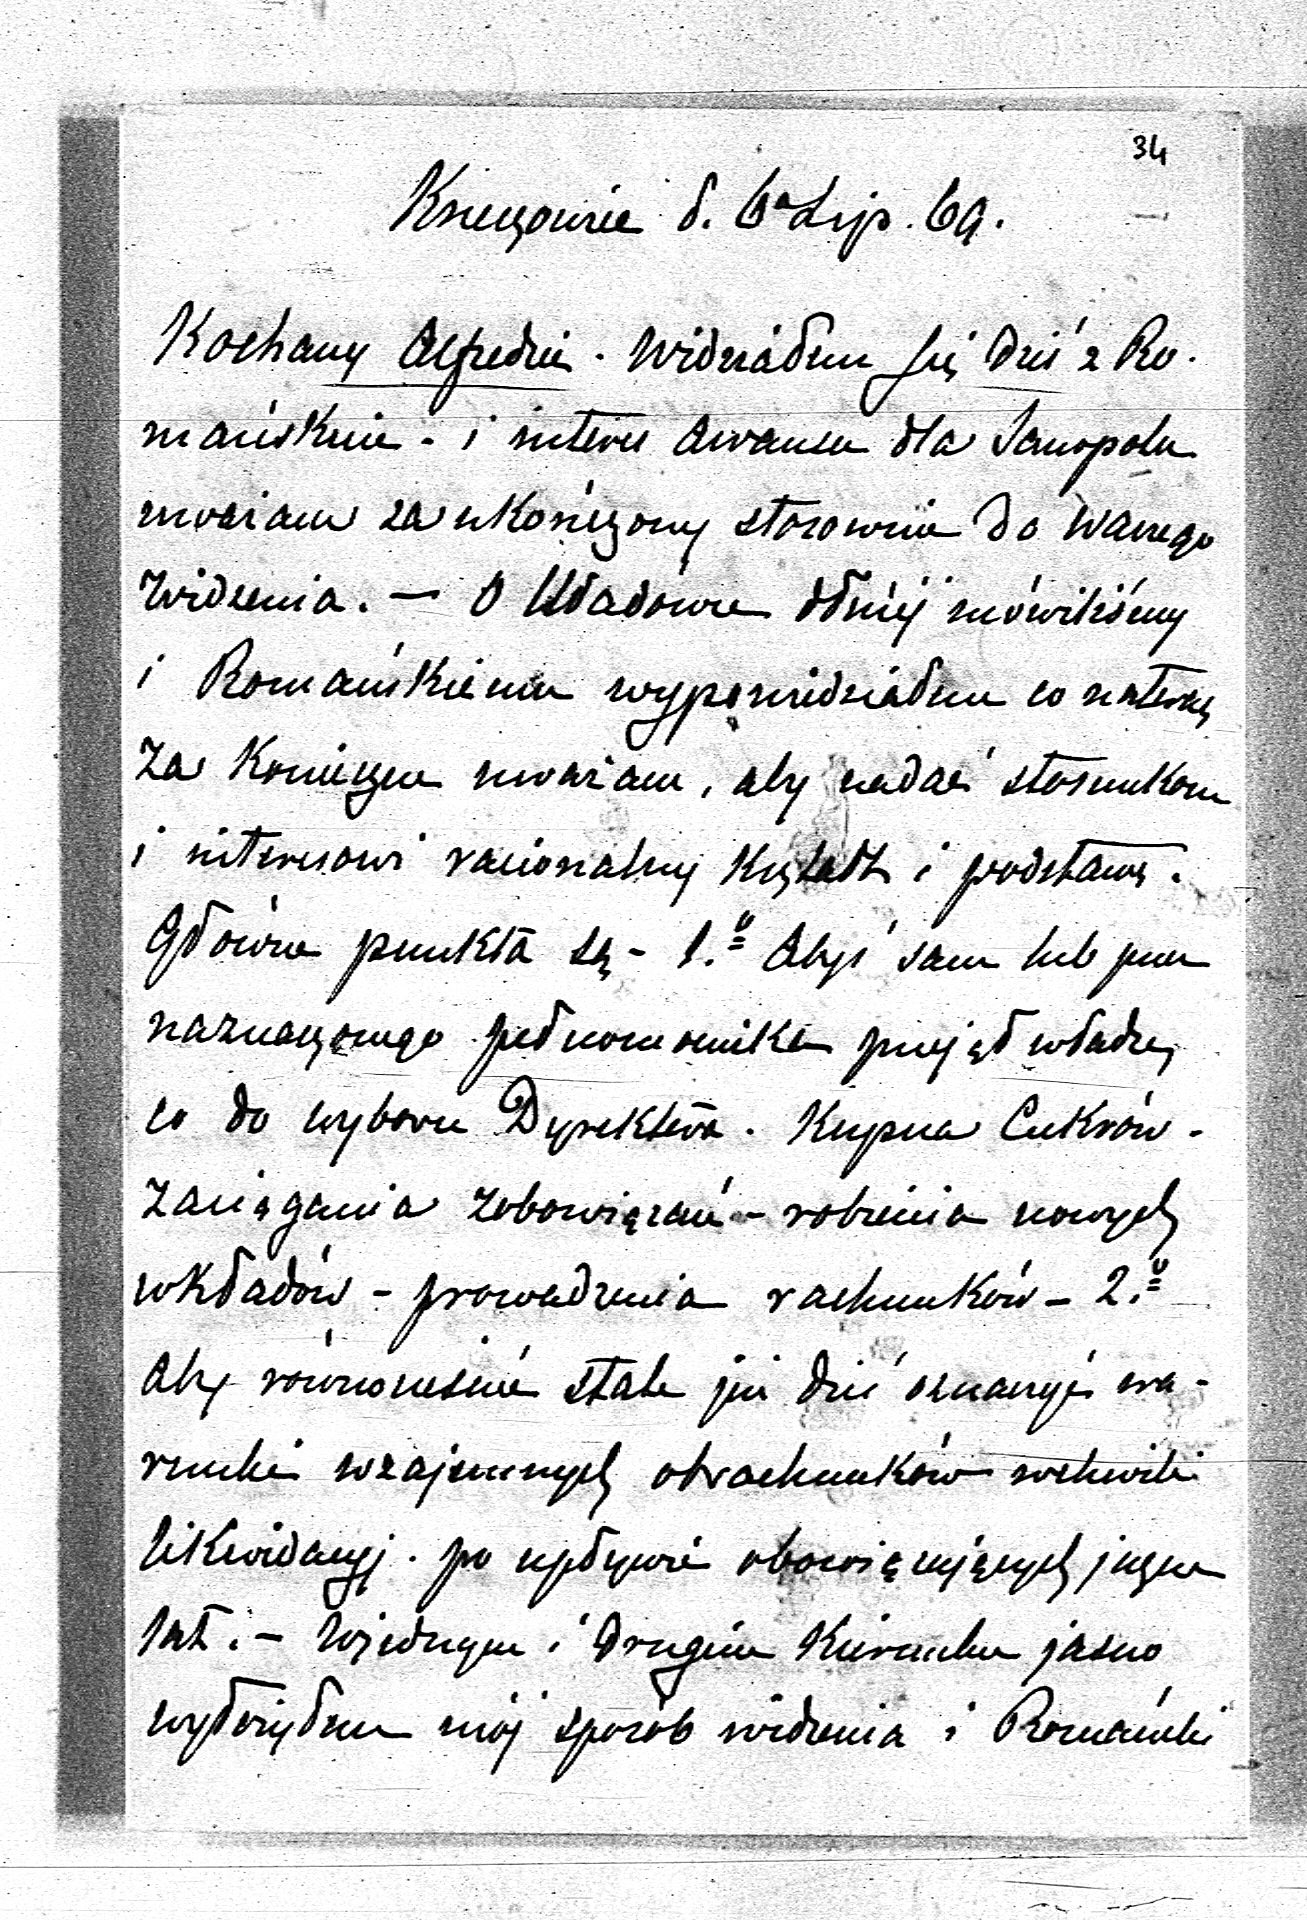 34
Krzeszowice d. 6go Lip. 69.
Kochany Alfredzie. Widziałem się dziś z Ro-
mańskim - i interes awansu dla Janopola
uważam za ukończony stosownie do Waszego
widzenia. — O Uładówce dłużéj mówiliśmy
i Romańskiemu wypowiedziałem co nateraz
za konieczne uważam, aby nadać stosunkom
i interesowi racionalny kształt i podstawę.
Główne punkta są - 1.o Abyś sam lub przez
naznaczonego pełnomocnika przejął władzę
co do wyboru Dyrektora. Kupna Cukrów -
zaciągania zobowiązań - robienia nowych
wkładów - prowadzenia rachunków - 2.o
Aby równocześnie stale już dziś oznaczyć wa-
runki wzajemnych obrachunków w chwili
likwidacyj. po upływie obowiązujących jeszcze
lat. - W jednym i drugim kierunku jasno
wyłożyłem mój sposób widzenia i Romański